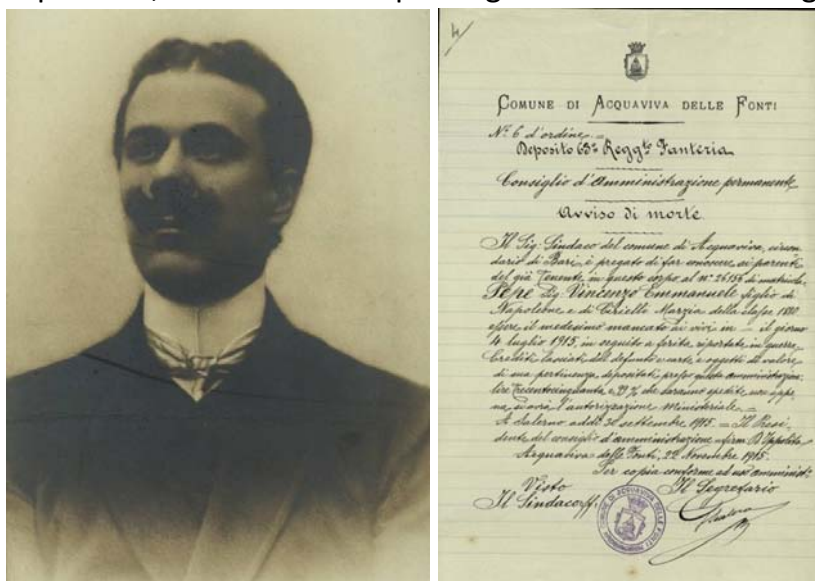 4
COMUNE DI ACQUAVIVA DELLE FONTI
N.º 6 d'ordine =
Deposito 63º Regg.to Fanteria
Consiglio d'Amministrazione permanente
Avviso di morte
Il Sig. Sindaco del comune di Acquaviva, circon
dario di Bari, è pregato di far conoscere ai parenti
del già Tenente in questo corpo al n.º 26155 di matricola
Pepe Sig. Vincenzo Emmanuele figlio di
Napoleone e di Cirielle Marzia della classe 1880
essere il medesimo mancato ai vivi in — il giorno
4 luglio 1915, in seguito a ferite riportate in guerra.
Crediti lasciati dal defunto e carte e oggetti di valore
di sua pertinenza, depositati presso questa amministrazione
lire Trecentocinquanta e 99 % che saranno spedite non appe
na si avrà l'autorizzazione Ministeriale. =
A Salerno addì 30 settembre 1915. = Il Presi
dente del consiglio d'amministrazione D'Ippolito
Acquaviva delle Fonti, 22 Novembre 1915.
Per copia conforme ad uso amminist.
Visto
Il Segretario
Il Sindaco ff.
COMUNE DI ACQUAVIVA DELLE FONTI